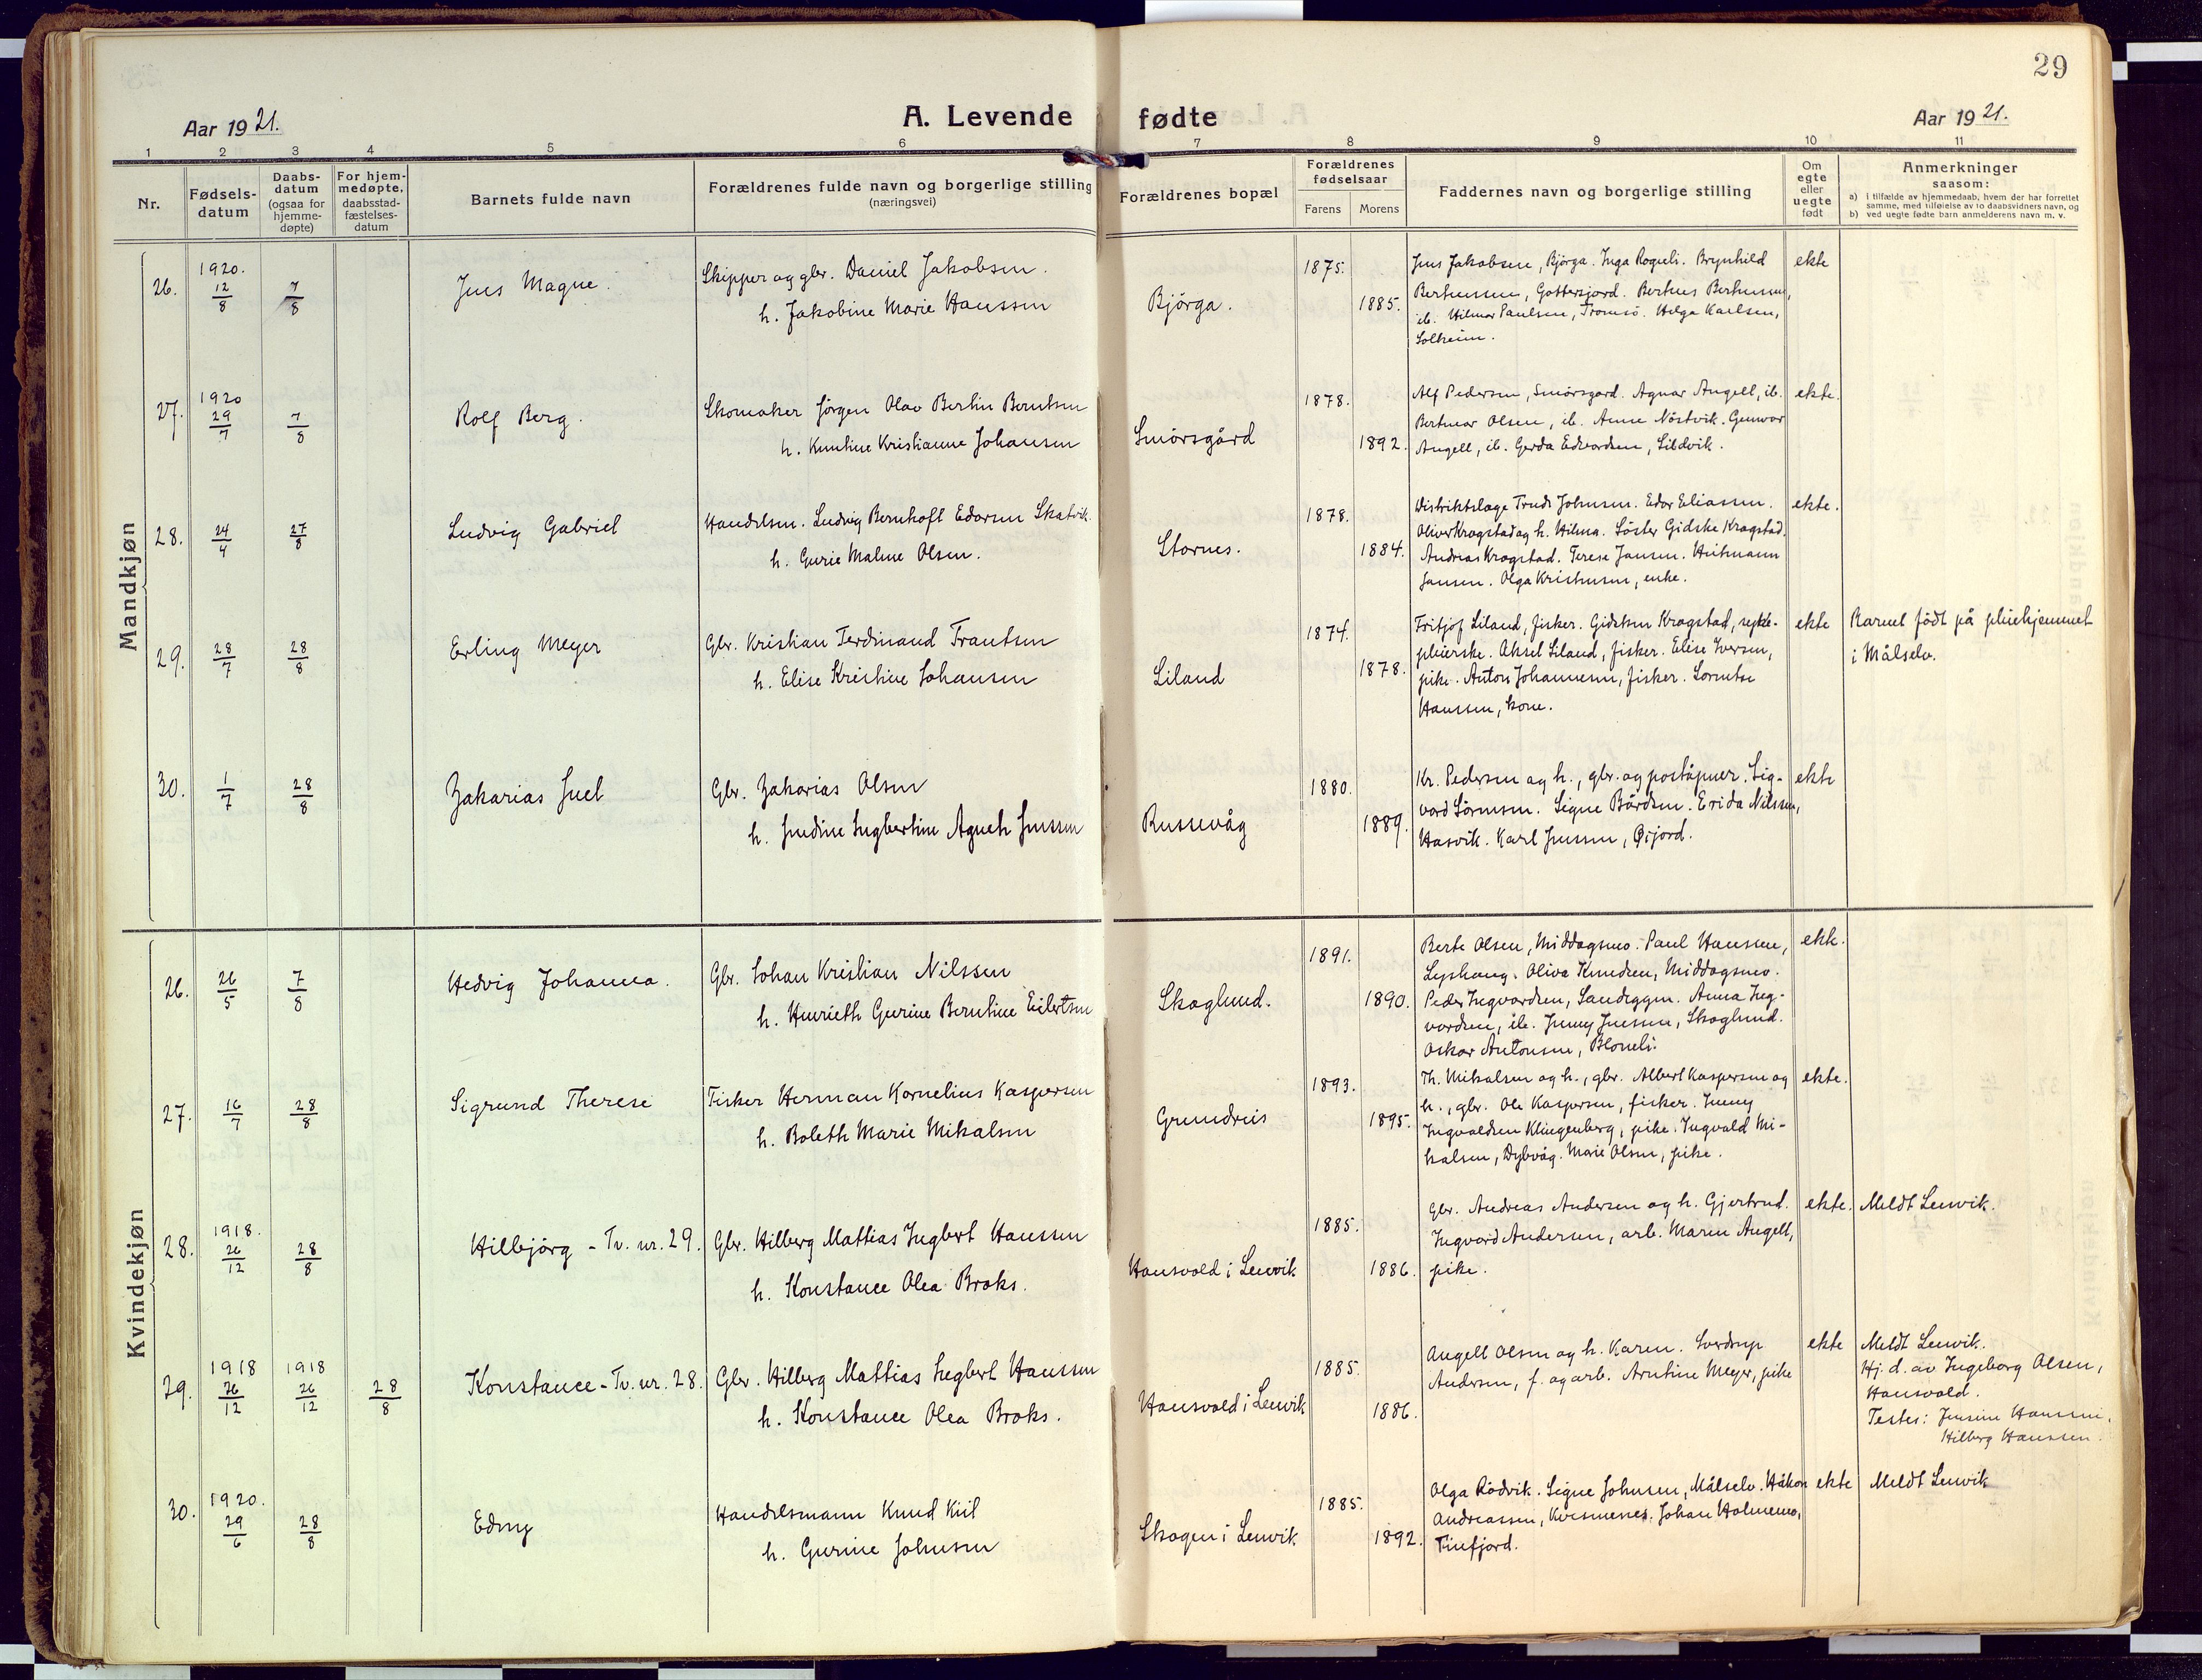 29
Aar 1921.
A. Levende fødte
Aar 1921.
1 2 3 4 5 6 7 8 9 10 11
Nr.
Fødsels-
datum
Daabs-
datum
(ogsaa for
hjemme-
døpte)
For hjem-
medøpte,
daabsstad-
fæstelses-
datum
Barnets fulde navn
Forældrenes fulde navn og borgerlige stilling
(næringsvei)
Forældrenes bopæl
Forældrenes
fødselsaar
Farens Morens
Faddernes navn og borgerlige stilling
Om
egte
eller
uegte
født
Anmerkninger
saasom:
a) i tilfælde av hjemmedaab, hvem der har forrettet
samme, med tilføielse av to daabsvidners navn, og
b) ved uegte fødte barn anmelderens navn m. v.
Mandkjøn
26. 1920. 12/8 7/8 Jens Magne.
Skipper og gbr. Daniel Jakobsen.
h. Jakobine Marie Hanssen
Bjørga.
1875. 1885.
Jens Jakobsen, Bjørga. Inga Rogneli. Brynhild
Berthussen, Gottersjord. Berthus Berthussen,
ib. Hilmar Paulsen, Tromsø. Helga Karlsen,
Solheim.
ekte
27. 1920 29/7 7/8 Rolf Berg.
Skomaker Jørgen Olav Bertin Berntsen
h. Knutine Kristianne Johansen
Smörsgård
1878. 1892.
Alf Pedersen, Smörsgard. Agnar Angell, ib.
Bertmar Olsen, ib. Anne Nöstvik. Gunvor
Angell, ib. Gerda Edvardsen, Lildvik.
ekte.
28. 24/4 27/8 Ludvig Gabriel
Handelsm. Ludvig Bernhoft Edorsen Skatvik.
h. Gurie Maline Olsen.
Stornes.
1878. 1884.
Distriktslæge Trude Johnsen. Edor Eliassen.
Oliver Kragstad og h. Hilma. Söster Gidske Kragstad.
Andreas Kragstad. Terese Jansen. Heitmann
Jansen. Olga Kristensen, enke.
ekte.
29. 28/7 28/8 Erling Meyer
Gbr. Kristian Ferdinand Frantsen
h. Elise Kristine Johansen
Liland
1874. 1878.
Fritjof Liland, fisker. Gidsken Kragstad, syke-
pleierske. Aksel Liland, fisker. Elise Iversen,
pike. Anton Johannesen, fisker. Lorentse
Hanssen, kone.
ekte
Barnet födt på pleiehjemmet
i Målselv.
30. 1/7 28/8 Zakarias Juel
Gbr. Zakarias Olsen
h. Jendine Ingbertine Agneth Jenssen
Russevåg
1880. 1889.
Kr. Pedersen og h., gbr. og poståpner. Sig-
vard Sörensen. Signe Bårdsen. Erida Nilssen,
Hasvik. Karl Jenssen, Örjord.
ekte
Kvindekjøn
26. 26/5 7/8 Hedvig Johanna.
Gbr. Johan Kristian Nilssen
h. Henrieth Gurine Berntine Eilertsen
Skoglund.
1891. 1890.
Berte Olsen, Middagsmo. Paul Hanssen,
Lyshaug. Oliva Knudsen, Middagsmo.
Peder Ingvardsen, Sandeggen. Anna Ing-
vardsen, ib. Jenny Jenssen, Skoglund.
Oskar Antonsen, Bloneli.
ekte.
27. 16/7 28/8 Sigrund Therese
Fisker Herman Kornelius Kaspersen
h. Boleth Marie Mikalsen
Grundreis
1893. 1895.
Th. Mikalsen og h., gbr. Albert Kaspersen og
h., gbr. Ole Kaspersen, fisker. Jenny
Ingvaldsen Klingenberg, pike. Ingvald Mi-
kalsen, Dybvåg. Marie Olsen, pike.
ekte.
28. 1918. 26/12 28/8 Hilbjörg - Tv. nr. 29.
Gbr. Hilberg Mattias Ingbert Hanssen
h. Konstance Olea Broks.
Hansvold i Lenvik
1885. 1886.
Gbr. Andreas Andersen og h. Gjertrud.
Ingvard Andersen, arb. Maren Angell,
pike.
ekte.
Meldt Lenvik.
29. 1918 26/12 1918 26/12 28/8 Konstance - Tv. nr. 28.
Gbr. Hilberg Mattias Ingbert Hanssen
h. Konstance Olea Broks.
Hansvold i Lenvik
1885. 1886.
Angell Olsen og h. Karen. Sverdrup
Andersen, f. og arb. Arntine Meyer, pike
ekte
Meldt Lenvik.
Hj. d. av Ingeborg Olsen,
Hansvold.
Testes: Jensine Hanssen,
Hilberg Hanssen.
30. 1920. 29/6 28/8 Edny
Handelsmann Knud Kiil
h. Gurine Johnsen
Skogen i Lenvik
1885. 1892.
Olga Rödvik. Signe Johnsen, Målselv. Håkon
Andreassen, Kvesmenes. Johan Holmemo,
Finfjord.
ekte
Meldt Lenvik